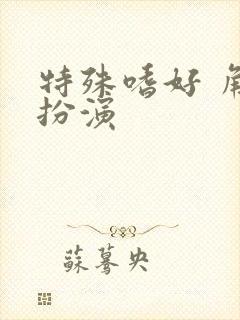 特殊嗜好 角
扮演
蘇驀央